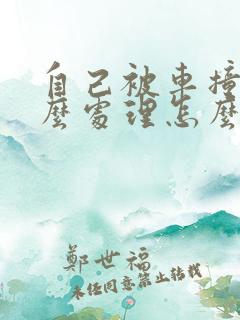 自己被車撞
麼處理怎麼
鄭世福
未經同意禁止轉載